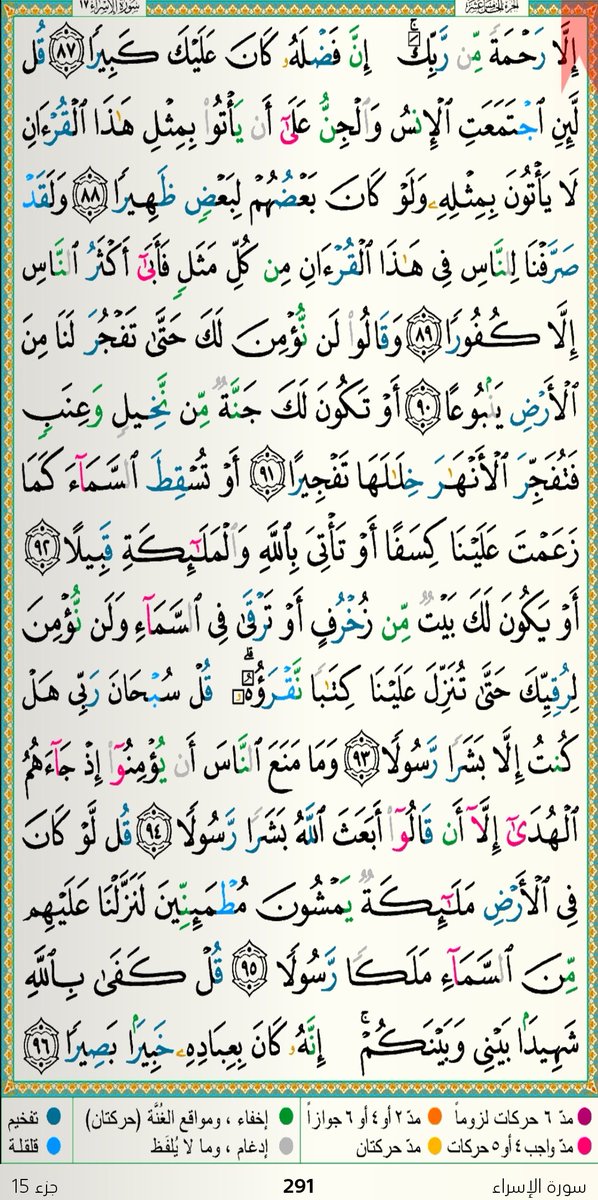 سورة الإسراء ١٧ الجزء الخامس عشر
إِلَّا رَحْمَةً مِّن رَّبِّكَ ۚ إِنَّ فَضْلَهُۥ كَانَ عَلَيْكَ كَبِيرًا ٨٧ قُل
لَّئِنِ ٱجْتَمَعَتِ ٱلْإِنسُ وَٱلْجِنُّ عَلَىٰٓ أَن يَأْتُوا۟ بِمِثْلِ هَـٰذَا ٱلْقُرْءَانِ
لَا يَأْتُونَ بِمِثْلِهِۦ وَلَوْ كَانَ بَعْضُهُمْ لِبَعْضٍ ظَهِيرًا ٨٨ وَلَقَدْ
صَرَّفْنَا لِلنَّاسِ فِى هَـٰذَا ٱلْقُرْءَانِ مِن كُلِّ مَثَلٍ فَأَبَىٰٓ أَكْثَرُ ٱلنَّاسِ
إِلَّا كُفُورًا ٨٩ وَقَالُوا۟ لَن نُّؤْمِنَ لَكَ حَتَّىٰ تَفْجُرَ لَنَا مِنَ
ٱلْأَرْضِ يَنۢبُوعًا ٩٠ أَوْ تَكُونَ لَكَ جَنَّةٌ مِّن نَّخِيلٍ وَعِنَبٍ
فَتُفَجِّرَ ٱلْأَنْهَـٰرَ خِلَـٰلَهَا تَفْجِيرًا ٩١ أَوْ تُسْقِطَ ٱلسَّمَآءَ كَمَا
زَعَمْتَ عَلَيْنَا كِسَفًا أَوْ تَأْتِىَ بِٱللَّهِ وَٱلْمَلَـٰٓئِكَةِ قَبِيلًا ٩٢
أَوْ يَكُونَ لَكَ بَيْتٌ مِّن زُخْرُفٍ أَوْ تَرْقَىٰ فِى ٱلسَّمَآءِ وَلَن نُّؤْمِنَ
لِرُقِيِّكَ حَتَّىٰ تُنَزِّلَ عَلَيْنَا كِتَـٰبًا نَّقْرَؤُهُۥ ۗ قُلْ سُبْحَانَ رَبِّى هَلْ
كُنتُ إِلَّا بَشَرًا رَّسُولًا ٩٣ وَمَا مَنَعَ ٱلنَّاسَ أَن يُؤْمِنُوٓا۟ إِذْ جَآءَهُمُ
ٱلْهُدَىٰٓ إِلَّآ أَن قَالُوٓا۟ أَبَعَثَ ٱللَّهُ بَشَرًا رَّسُولًا ٩٤ قُل لَّوْ كَانَ
فِى ٱلْأَرْضِ مَلَـٰٓئِكَةٌ يَمْشُونَ مُطْمَئِنِّينَ لَنَزَّلْنَا عَلَيْهِم
مِّنَ ٱلسَّمَآءِ مَلَكًا رَّسُولًا ٩٥ قُلْ كَفَىٰ بِٱللَّهِ
شَهِيدًۢا بَيْنِى وَبَيْنَكُمْ ۚ إِنَّهُۥ كَانَ بِعِبَادِهِۦ خَبِيرًۢا بَصِيرًا ٩٦
مدّ ٦ حركات لزوماً مدّ ٢ أو ٤ أو ٦ جوازاً إخفاء ، ومواقع الغُنَّة (حركتان) تفخيم
مدّ واجب ٤ أو ٥ حركات مدّ حركتان إدغام ، وما لا يُلفَظ قلقلة
سورة الإسراء 291 جزء 15